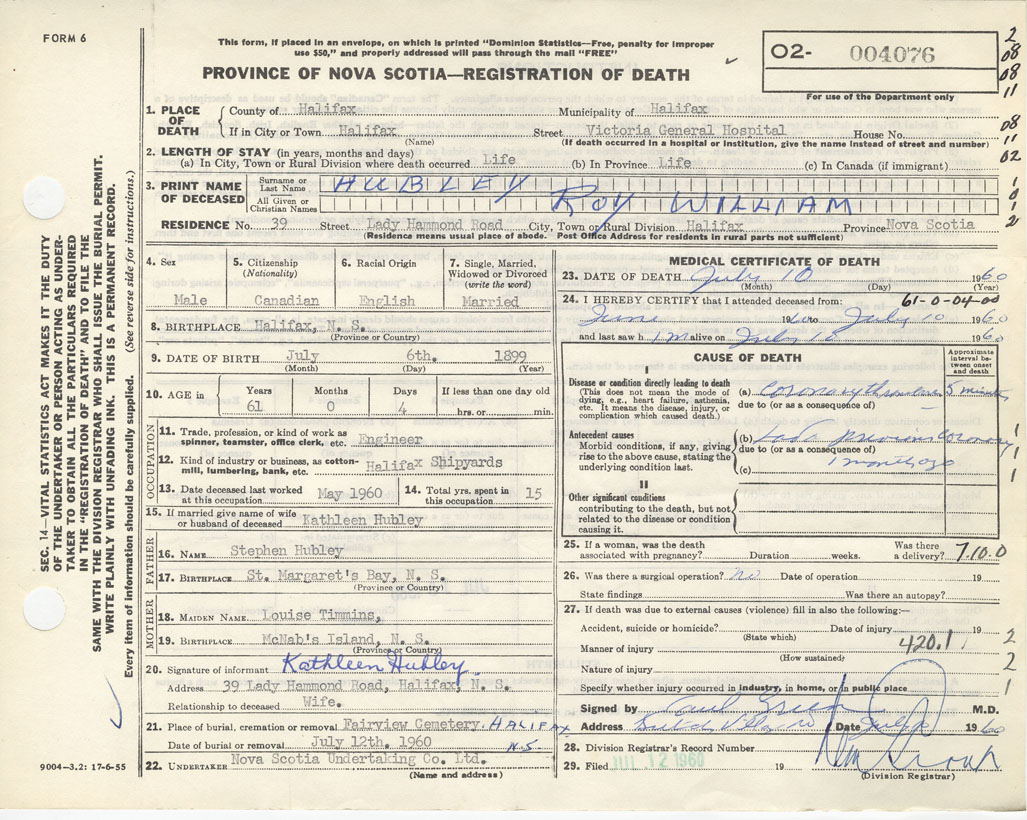 FORM 6
This form, if placed in an envelope, on which is printed "Dominion Statistics—Free, penalty for improper
use $50," and properly addressed will pass through the mail "FREE"
PROVINCE OF NOVA SCOTIA—REGISTRATION OF DEATH
O2- 004076
For use of the Department only
2
08
08
11
08
11
02
1
0
1
2
SEC. 14—VITAL STATISTICS ACT MAKES IT THE DUTY
OF THE UNDERTAKER OR PERSON ACTING AS UNDER-
TAKER TO OBTAIN ALL THE PARTICULARS REQUIRED
IN THE "REGISTRATION OF DEATH" AND TO FILE THE
SAME WITH THE DIVISION REGISTRAR WHO SHALL ISSUE THE BURIAL PERMIT.
WRITE PLAINLY WITH UNFADING INK. THIS IS A PERMANENT RECORD.
Every item of information should be carefully supplied. (See reverse side for instructions.)
1. PLACE OF DEATH
County of Halifax Municipality of Halifax
If in City or Town Halifax Street Victoria General Hospital House No.
(Name) (If death occurred in a hospital or institution, give the name instead of street and number)
2. LENGTH OF STAY (in years, months and days)
(a) In City, Town or Rural Division where death occurred Life (b) In Province Life (c) In Canada (if immigrant)
3. PRINT NAME OF DECEASED
Surname or Last Name HUBLEY
All Given or Christian Names ROY WILLIAM
RESIDENCE No. 39 Street Lady Hammond Road City, Town or Rural Division Halifax Province Nova Scotia
(Residence means usual place of abode. Post Office Address for residents in rural parts not sufficient)
4. Sex
Male
5. Citizenship
(Nationality)
Canadian
6. Racial Origin
English
7. Single, Married,
Widowed or Divorced
(write the word)
Married
8. BIRTHPLACE Halifax, N. S.
(Province or Country)
9. DATE OF BIRTH July 6th. 1899
(Month) (Day) (Year)
10. AGE in
Years Months Days If less than one day old
61 0 4 hrs. or min.
OCCUPATION
11. Trade, profession, or kind of work as
spinner, teamster, office clerk, etc. Engineer
12. Kind of industry or business, as cotton-
mill, lumbering, bank, etc. Halifax Shipyards
13. Date deceased last worked
at this occupation May 1960
14. Total yrs. spent in
this occupation 15
15. If married give name of wife
or husband of deceased Kathleen Hubley
FATHER
16. NAME Stephen Hubley
17. BIRTHPLACE St. Margaret's Bay, N. S.
(Province or Country)
MOTHER
18. MAIDEN NAME Louise Timmins,
19. BIRTHPLACE McNab's Island, N. S.
(Province or Country)
20. Signature of informant Kathleen Hubley
Address 39 Lady Hammond Road, Halifax, N. S.
Relationship to deceased Wife.
21. Place of burial, cremation or removal Fairview Cemetery. HALIFAX
Date of burial or removal July 12th. 1960 N.S.
22. UNDERTAKER Nova Scotia Undertaking Co. Ltd.
(Name and address)
9004—3.2: 17-6-55
MEDICAL CERTIFICATE OF DEATH
23. DATE OF DEATH July 10 1960
(Month) (Day) (Year)
24. I HEREBY CERTIFY that I attended deceased from: 61-0-04-00
June 1960 to July 10 1960
and last saw h im alive on July 10 1960
CAUSE OF DEATH
Approximate
interval be-
tween onset
and death
I
Disease or condition directly leading to death
(This does not mean the mode of
dying, e.g., heart failure, asthenia,
etc. It means the disease, injury, or
complication which caused death.)
(a) coronary thrombosis 5 minutes
due to (or as a consequence of)
Antecedent causes
Morbid conditions, if any, giving
rise to the above cause, stating the
underlying condition last.
(b) had previous coronary
due to (or as a consequence of)
(c) 1 month ago
II
Other significant conditions
contributing to the death, but not
related to the disease or condition
causing it.
1
1
1
25. If a woman, was the death
associated with pregnancy? Duration weeks. Was there
a delivery? 7.10.0
26. Was there a surgical operation? no Date of operation 19
State findings Was there an autopsy?
27. If death was due to external causes (violence) fill in also the following:—
Accident, suicide or homicide? Date of injury 19
(State which)
Manner of injury 420.1
(How sustained)
Nature of injury
Specify whether injury occurred in industry, in home, or in public place
2
2
1
Signed by M.D.
Address Date July 1960
28. Division Registrar's Record Number
29. Filed JUL 12 1960 19
(Division Registrar)